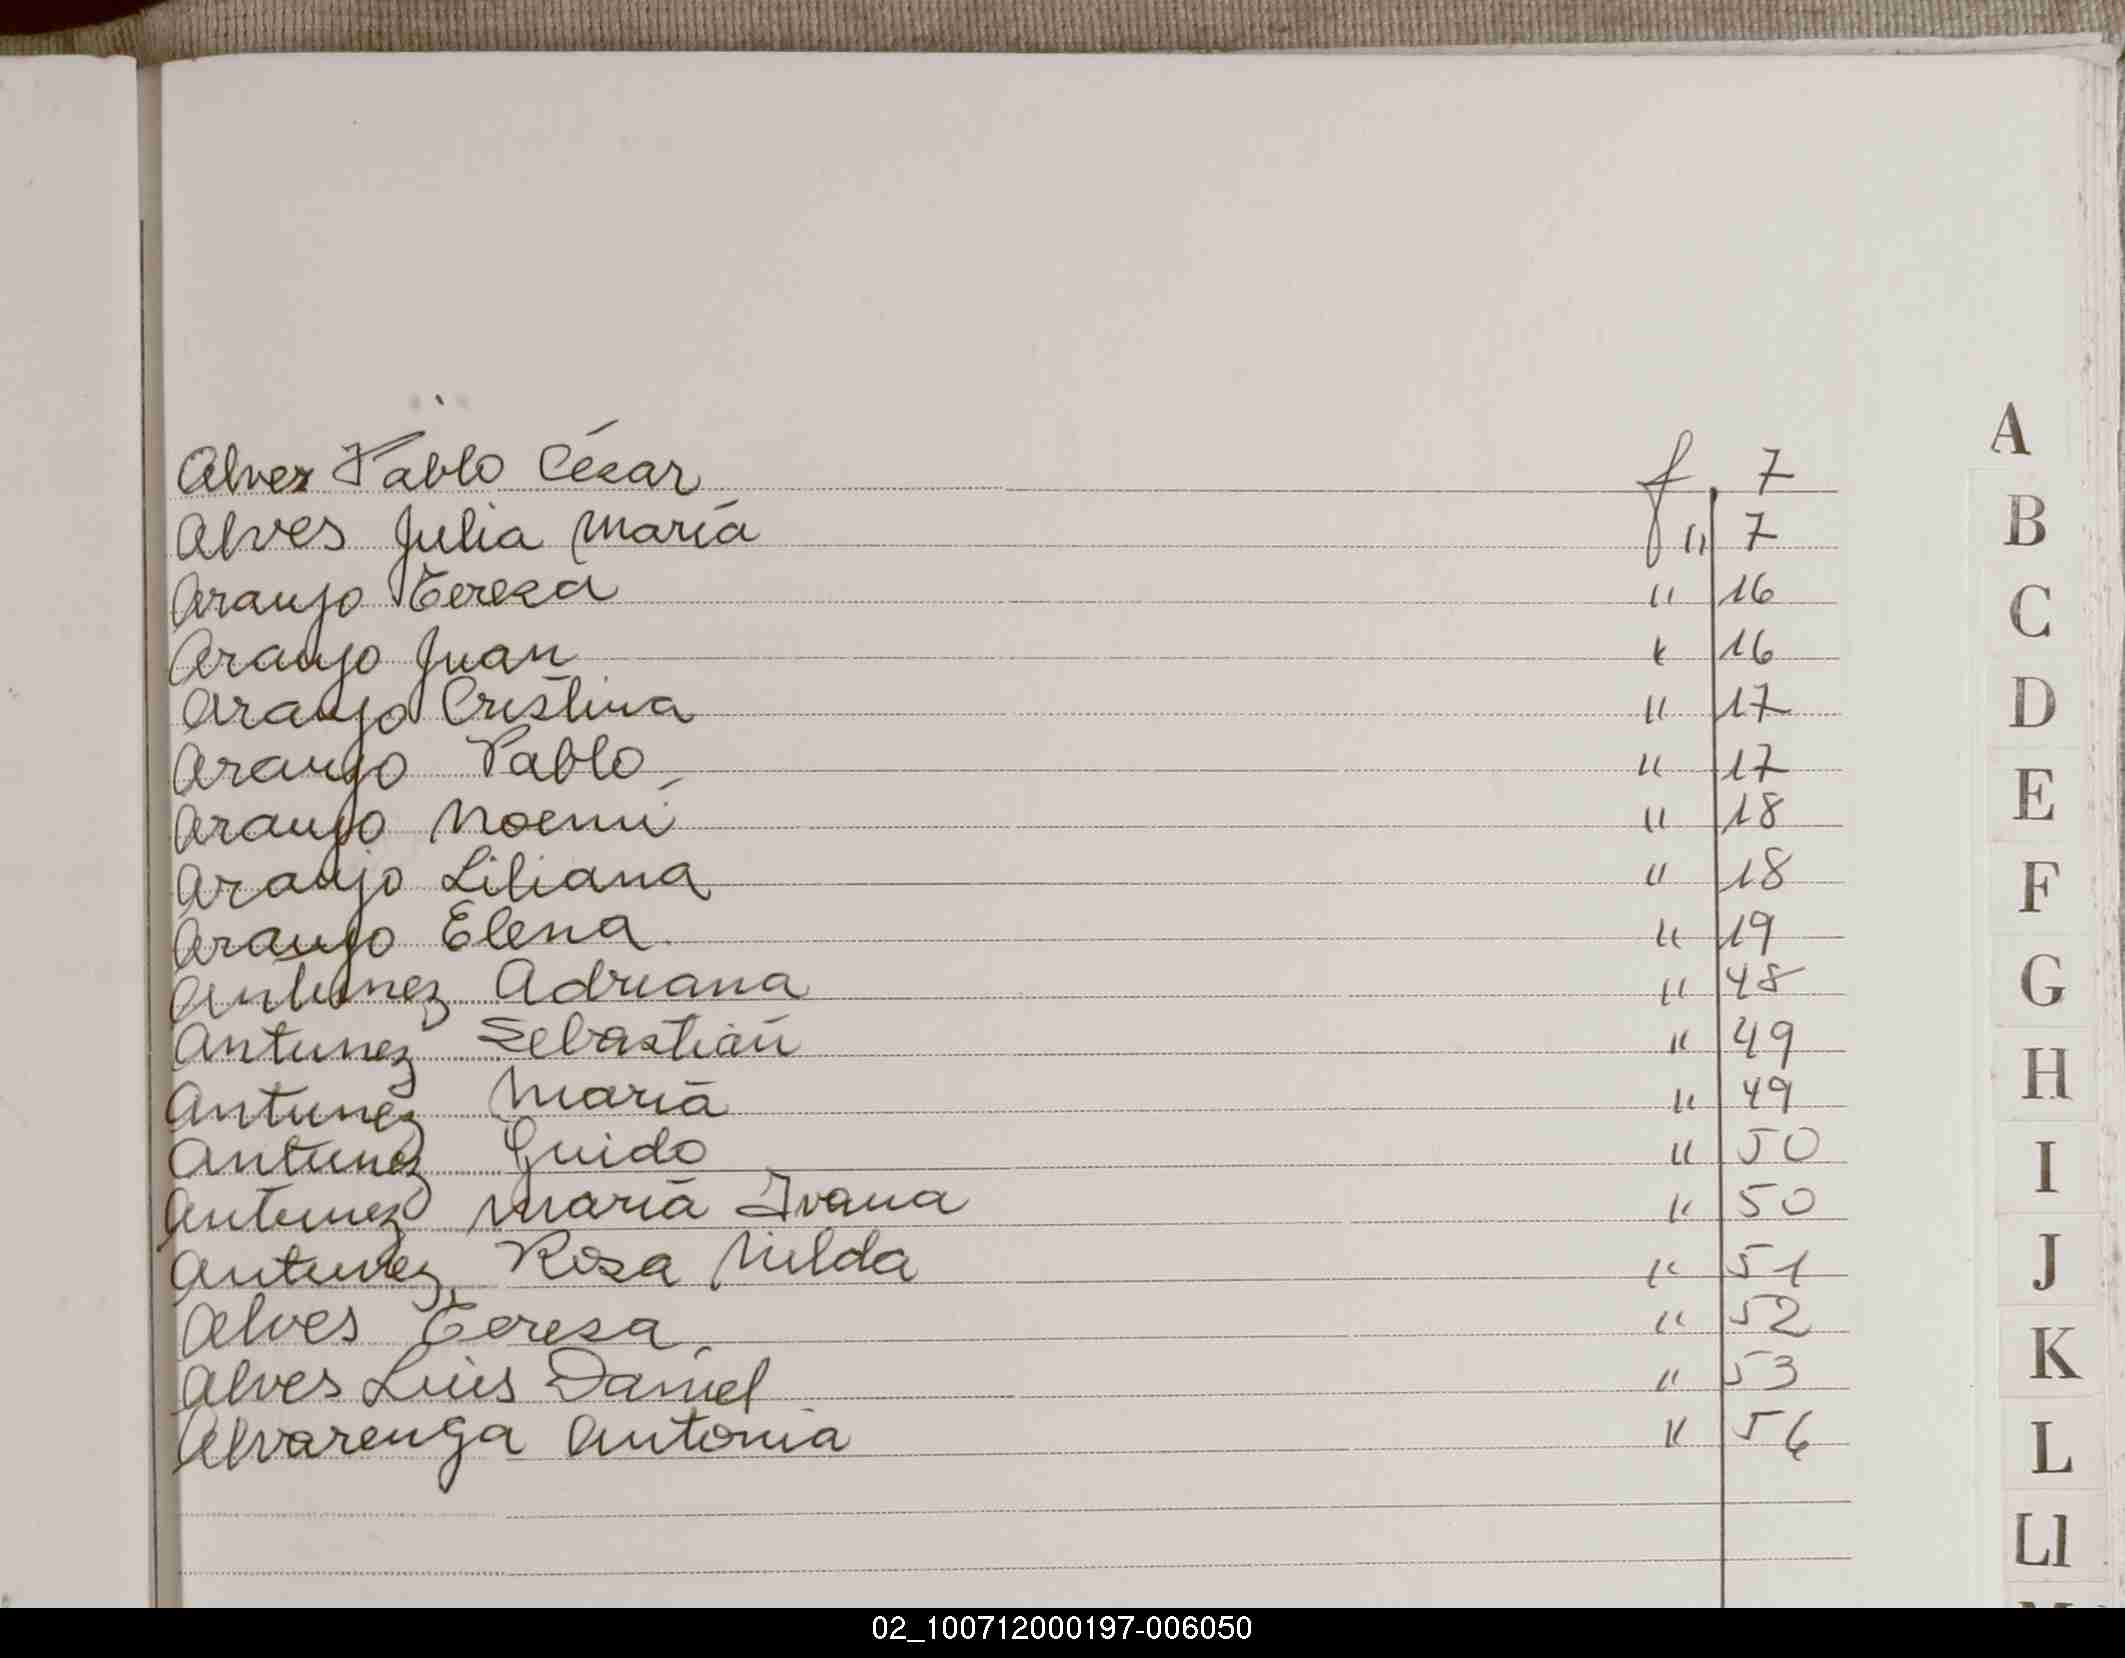 Alvez Pablo César f. 7
Alves Julia María f " 7
Araujo Tereza " 16
Araujo Juan " 16
Araujo Cristina " 17
Araujo Pablo " 17
Araujo Noemí " 18
Araujo Liliana " 18
Araujo Elena " 19
Antunez Adriana " 48
Antunez Sebastián " 49
Antunez María " 49
Antunez Guido " 50
Antunez María Ivana " 50
Antunez Rosa Nilda " 51
Alves Teresa " 52
Alves Luis Daniel " 53
Alvarenga Antonia " 56
A
B
C
D
E
F
G
H
I
J
K
L
Ll
02_100712000197-006050